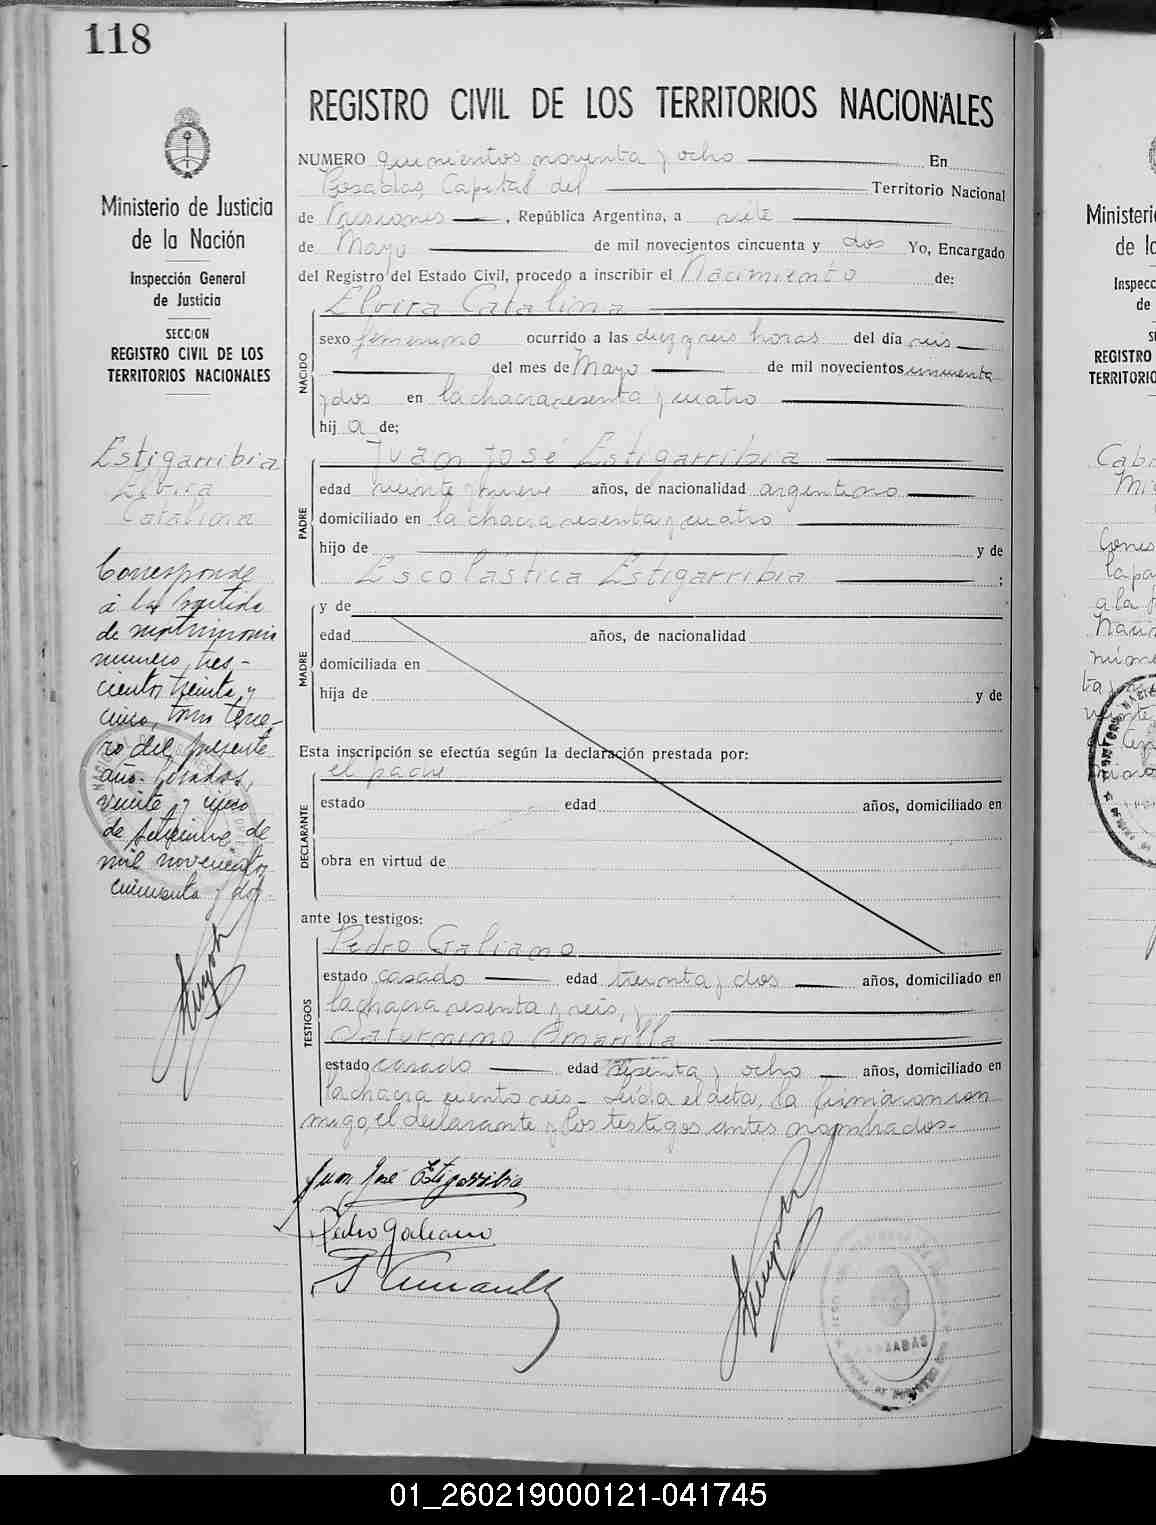 118
REGISTRO CIVIL DE LOS TERRITORIOS NACIONALES
Ministerio de Justicia
de la Nación
Inspección General
de Justicia
SECCION
REGISTRO CIVIL DE LOS
TERRITORIOS NACIONALES
Estigarribia
Elvira
Catalina
Corresponde
a la partida
de matrimonio
numero, tres-
cientos treinta y
cinco, tomo terce-
ro del presente
año. Posadas,
veinte y cinco
de setiembre de
mil novecientos
cincuenta y dos.
NUMERO quinientos noventa y ocho En
Posadas, Capital del Territorio Nacional
de Misiones, República Argentina, a siete
de Mayo de mil novecientos cincuenta y dos Yo, Encargado
del Registro del Estado Civil, procedo a inscribir el Nacimiento de:
NACIDO
Elvira Catalina
sexo femenino ocurrido a las diez y seis horas del día seis
del mes de Mayo de mil novecientos cincuenta
y dos en la chacra sesenta y cuatro
hij a de;
PADRE
Juan José Estigarribia
edad veinte y nueve años, de nacionalidad argentino
domiciliado en la chacra sesenta y cuatro
hijo de y de
Escolástica Estigarribia :
MADRE
y de
edad años, de nacionalidad
domiciliada en
hija de y de
Esta inscripción se efectúa según la declaración prestada por:
DECLARANTE
el padre
estado edad años, domiciliado en
obra en virtud de
ante los testigos:
TESTIGOS
Pedro Galiano
estado casado edad treinta y dos años, domiciliado en
la chacra sesenta y seis, y
Saturnino Amarilla
estado casado edad sesenta y ocho años, domiciliado en
la chacra ciento seis - Leída el acta, la firmaron con
migo, el declarante y los testigos antes nombrados.-
Juan José Estigarribia
Pedro Galeano
POSADAS
Ministeri
de la
Inspecc
de
REGISTRO
TERRITORIO
01_260219000121-041745